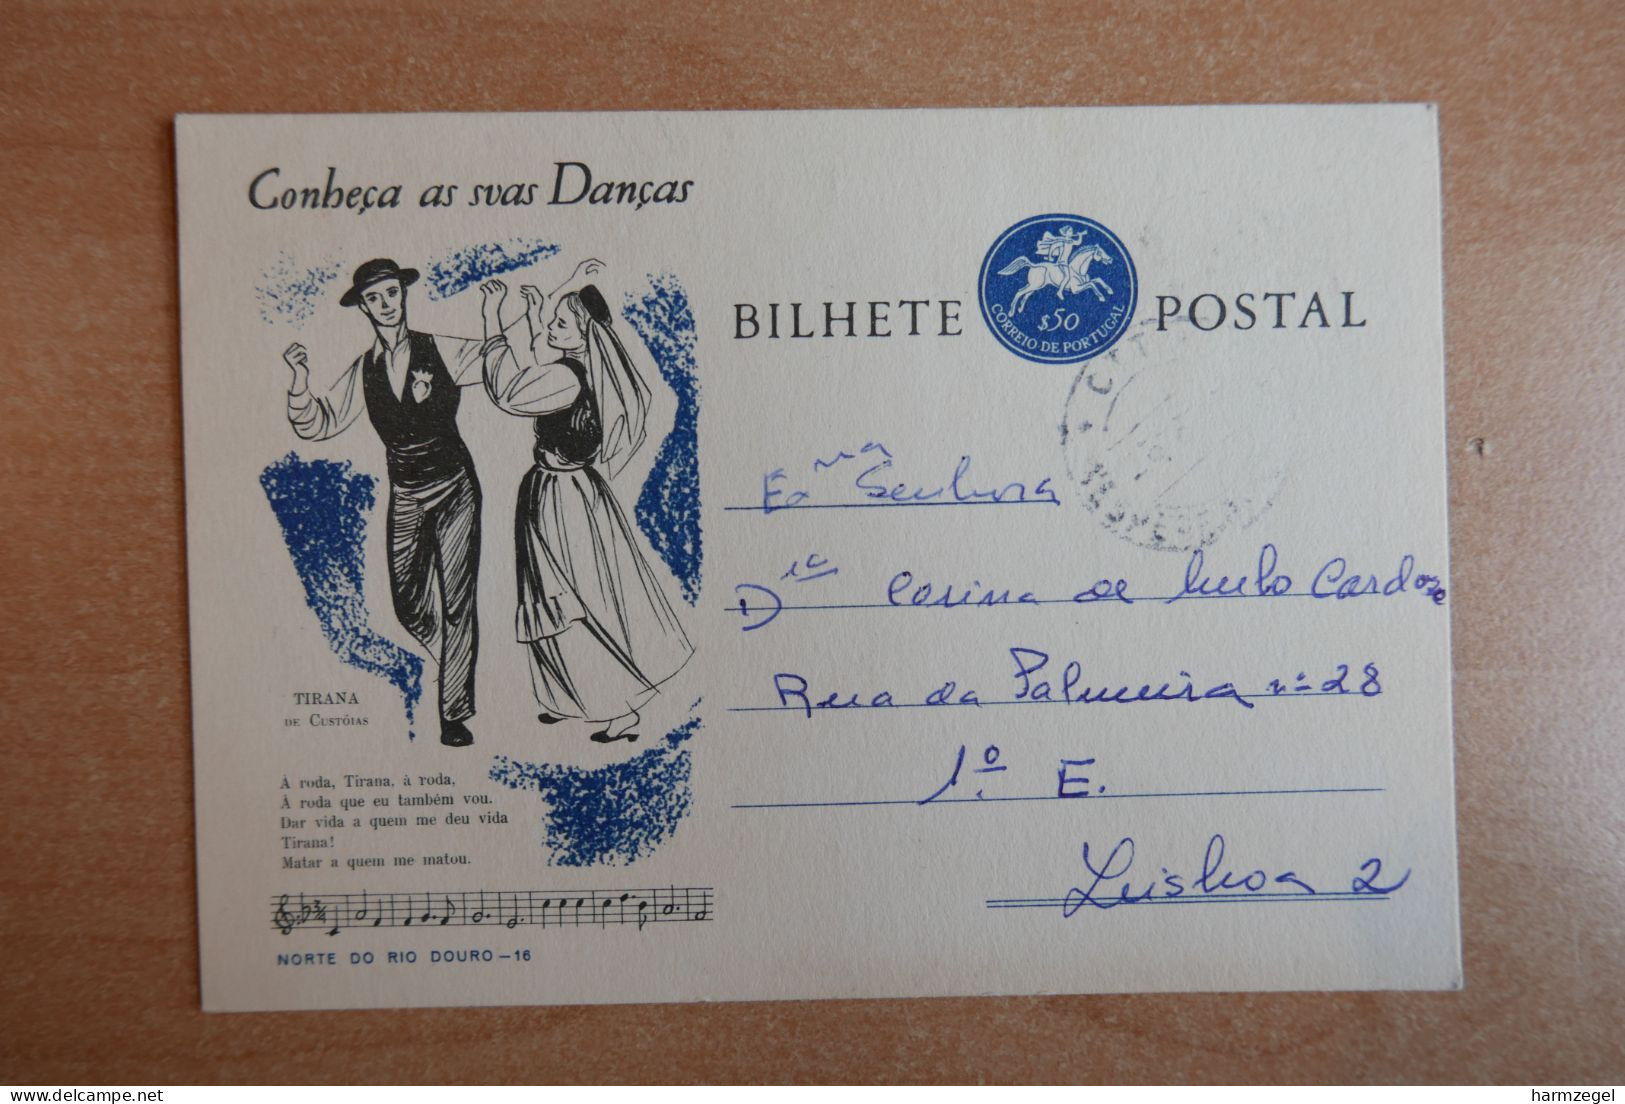 Conheça as suas Danças
BILHETE POSTAL
$50
CORREIO DE PORTUGAL
TIRANA
DE CUSTÓIAS
À roda, Tirana, à roda,
À roda que eu também vou.
Dar vida a quem me deu vida
Tirana!
Matar a quem me matou.
NORTE DO RIO DOURO – 16
Exma Senhora
D. Corina de Melo Cardoso
Rua da Palmeira nº 28
1.º E.
Lisboa 2
harmzegel